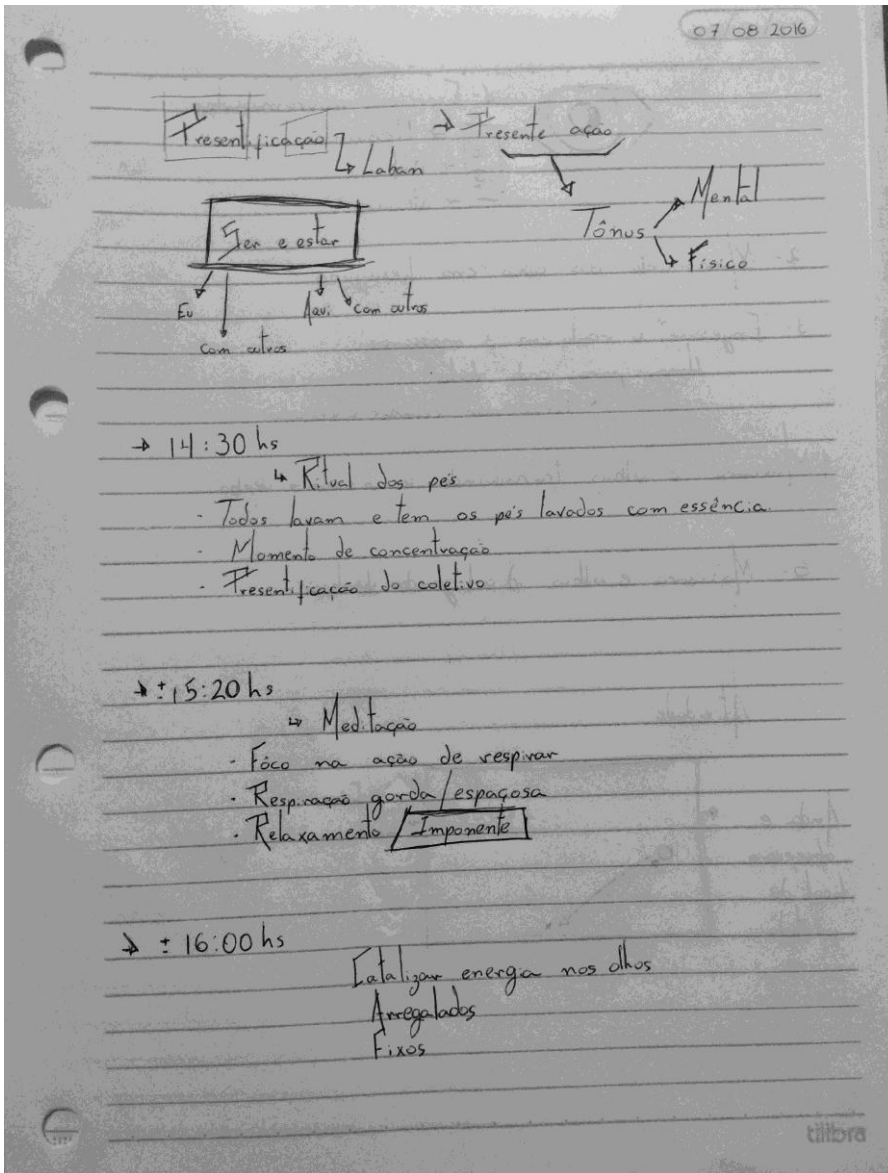 07 08 2016
Presentificação → Presente ação
↳ Laban
Mental
Tônus
Físico
Ser e estar
Eu Aqui com outros
com outros
→ 14:30 hs
↳ Ritual dos pés
- Todos lavam e tem os pés lavados com essência.
- Momento de concentração
- Presentificação do coletivo
→ ± 15:20 hs
↳ Meditação
· Fóco na ação de respirar
· Respiração gorda/espaçosa
· Relaxamento / Imponente
→ ± 16:00 hs
Catalizar energia nos olhos
Arregalados
Fixos
tilibra